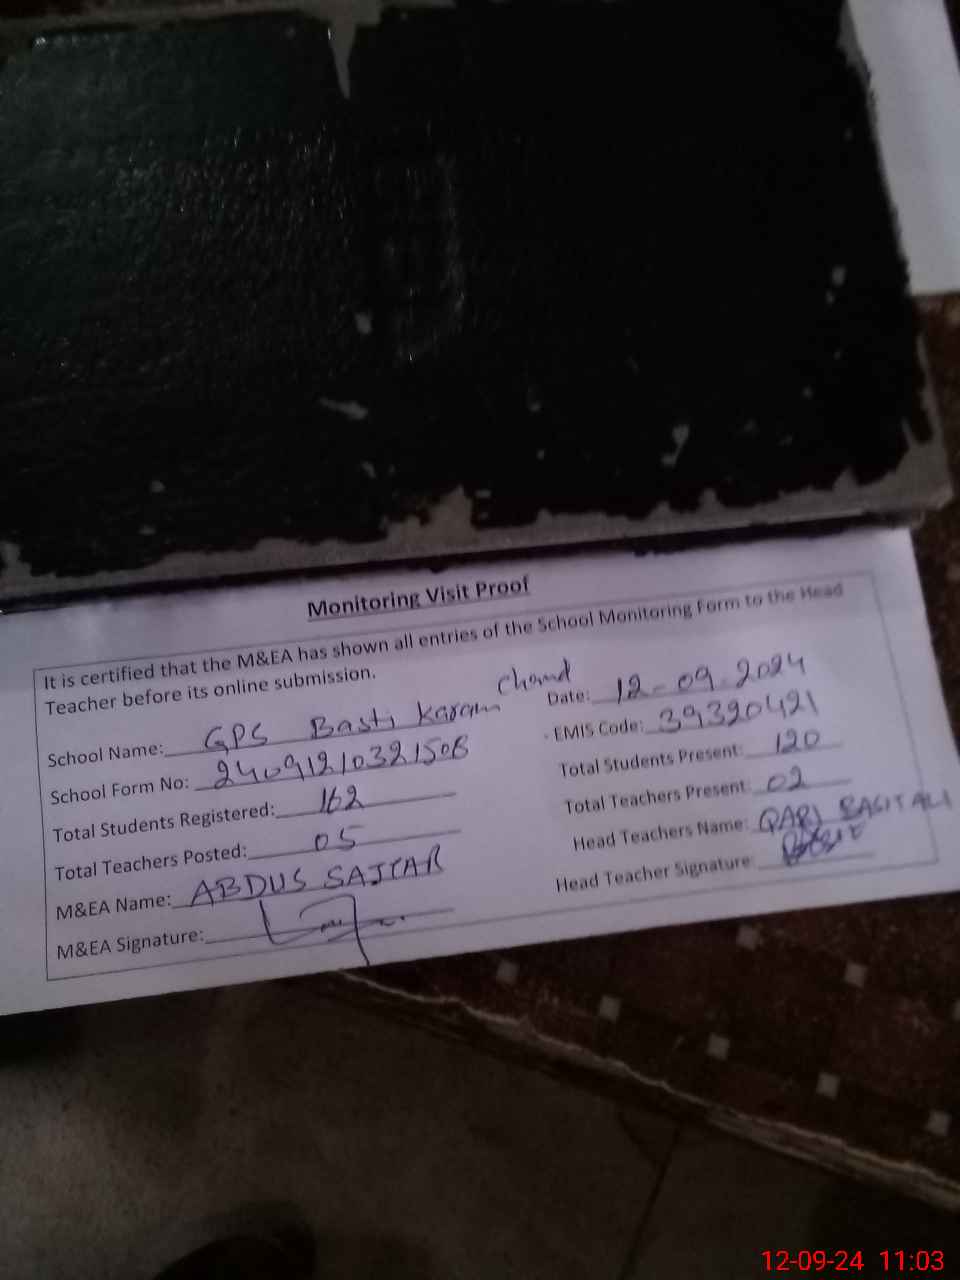 Monitoring Visit Proof
It is certified that the M&EA has shown all entries of the School Monitoring Form to the Head
Teacher before its online submission.
School Name: GPS Basti Karam Chand
Date: 12-09-2024
School Form No:
EMIS Code: 39320421
Total Students Registered: 162
Total Students Present: 120
Total Teachers Posted: 05
Total Teachers Present: 02
M&EA Name: ABDUS SATTAR
Head Teachers Name: QARI BASIT ALI
M&EA Signature:
Head Teacher Signature:
12-09-24 11:03